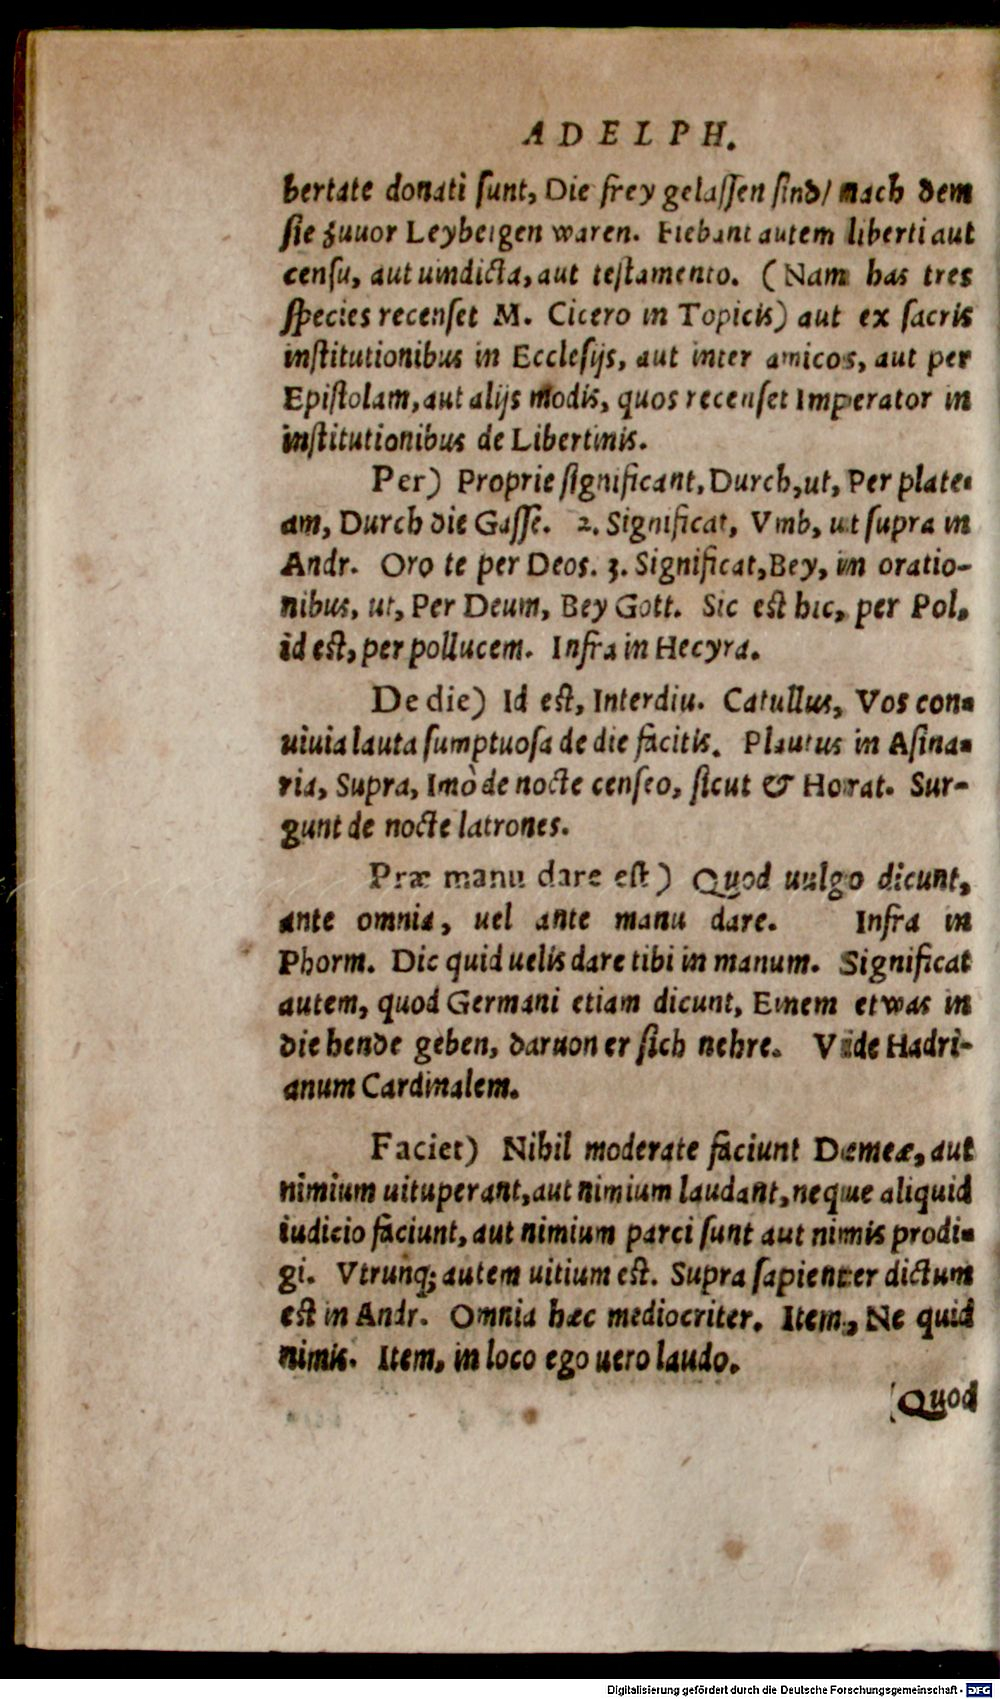 ADELPH.
bertate donati ſunt, Die frey gelaſſen ſind/ nach dem
ſie zuuor Leybeigen waren. Fiebant autem liberti aut
cenſu, aut uindicta, aut teſtamento. (Nam has tres
ſpecies recenſet M. Cicero in Topicis) aut ex ſacris
inſtitutionibus in Eccleſijs, aut inter amicos, aut per
Epiſtolam, aut alijs modis, quos recenſet Imperator in
inſtitutionibus de Libertinis.
Per) Proprie ſignificant, Durch, ut, Per plate-
am, Durch die Gaſſe. 2. Significat, Vmb, ut ſupra in
Andr. Oro te per Deos. 3. Significat, Bey, in oratio-
nibus, ut, Per Deum, Bey Gott. Sic eſt hic, per Pol,
id eſt, per pollucem. Infra in Hecyra.
De die) Id eſt, Interdiu. Catullus, Vos con-
uiuia lauta ſumptuoſa de die facitis. Plautus in Aſina-
ria, Supra, Imò de nocte cenſeo, ſicut & Horat. Sur-
gunt de nocte latrones.
Præ manu dare eſt) Quod uulgo dicunt,
ante omnia, uel ante manu dare. Infra in
Phorm. Dic quid uelis dare tibi in manum. Significat
autem, quod Germani etiam dicunt, Einem etwas in
die hende geben, daruon er ſich nehre. Vide Hadri-
anum Cardinalem.
Faciet) Nihil moderate faciunt Demeæ, aut
nimium uituperant, aut nimium laudant, neque aliquid
iudicio faciunt, aut nimium parci ſunt aut nimis prodi-
gi. Vtrunq; autem uitium eſt. Supra ſapienter dictum
eſt in Andr. Omnia hæc mediocriter. Item, Ne quid
nimis. Item, in loco ego uero laudo.
Quod
Digitalisierung gefördert durch die Deutsche Forschungsgemeinschaft - DFG